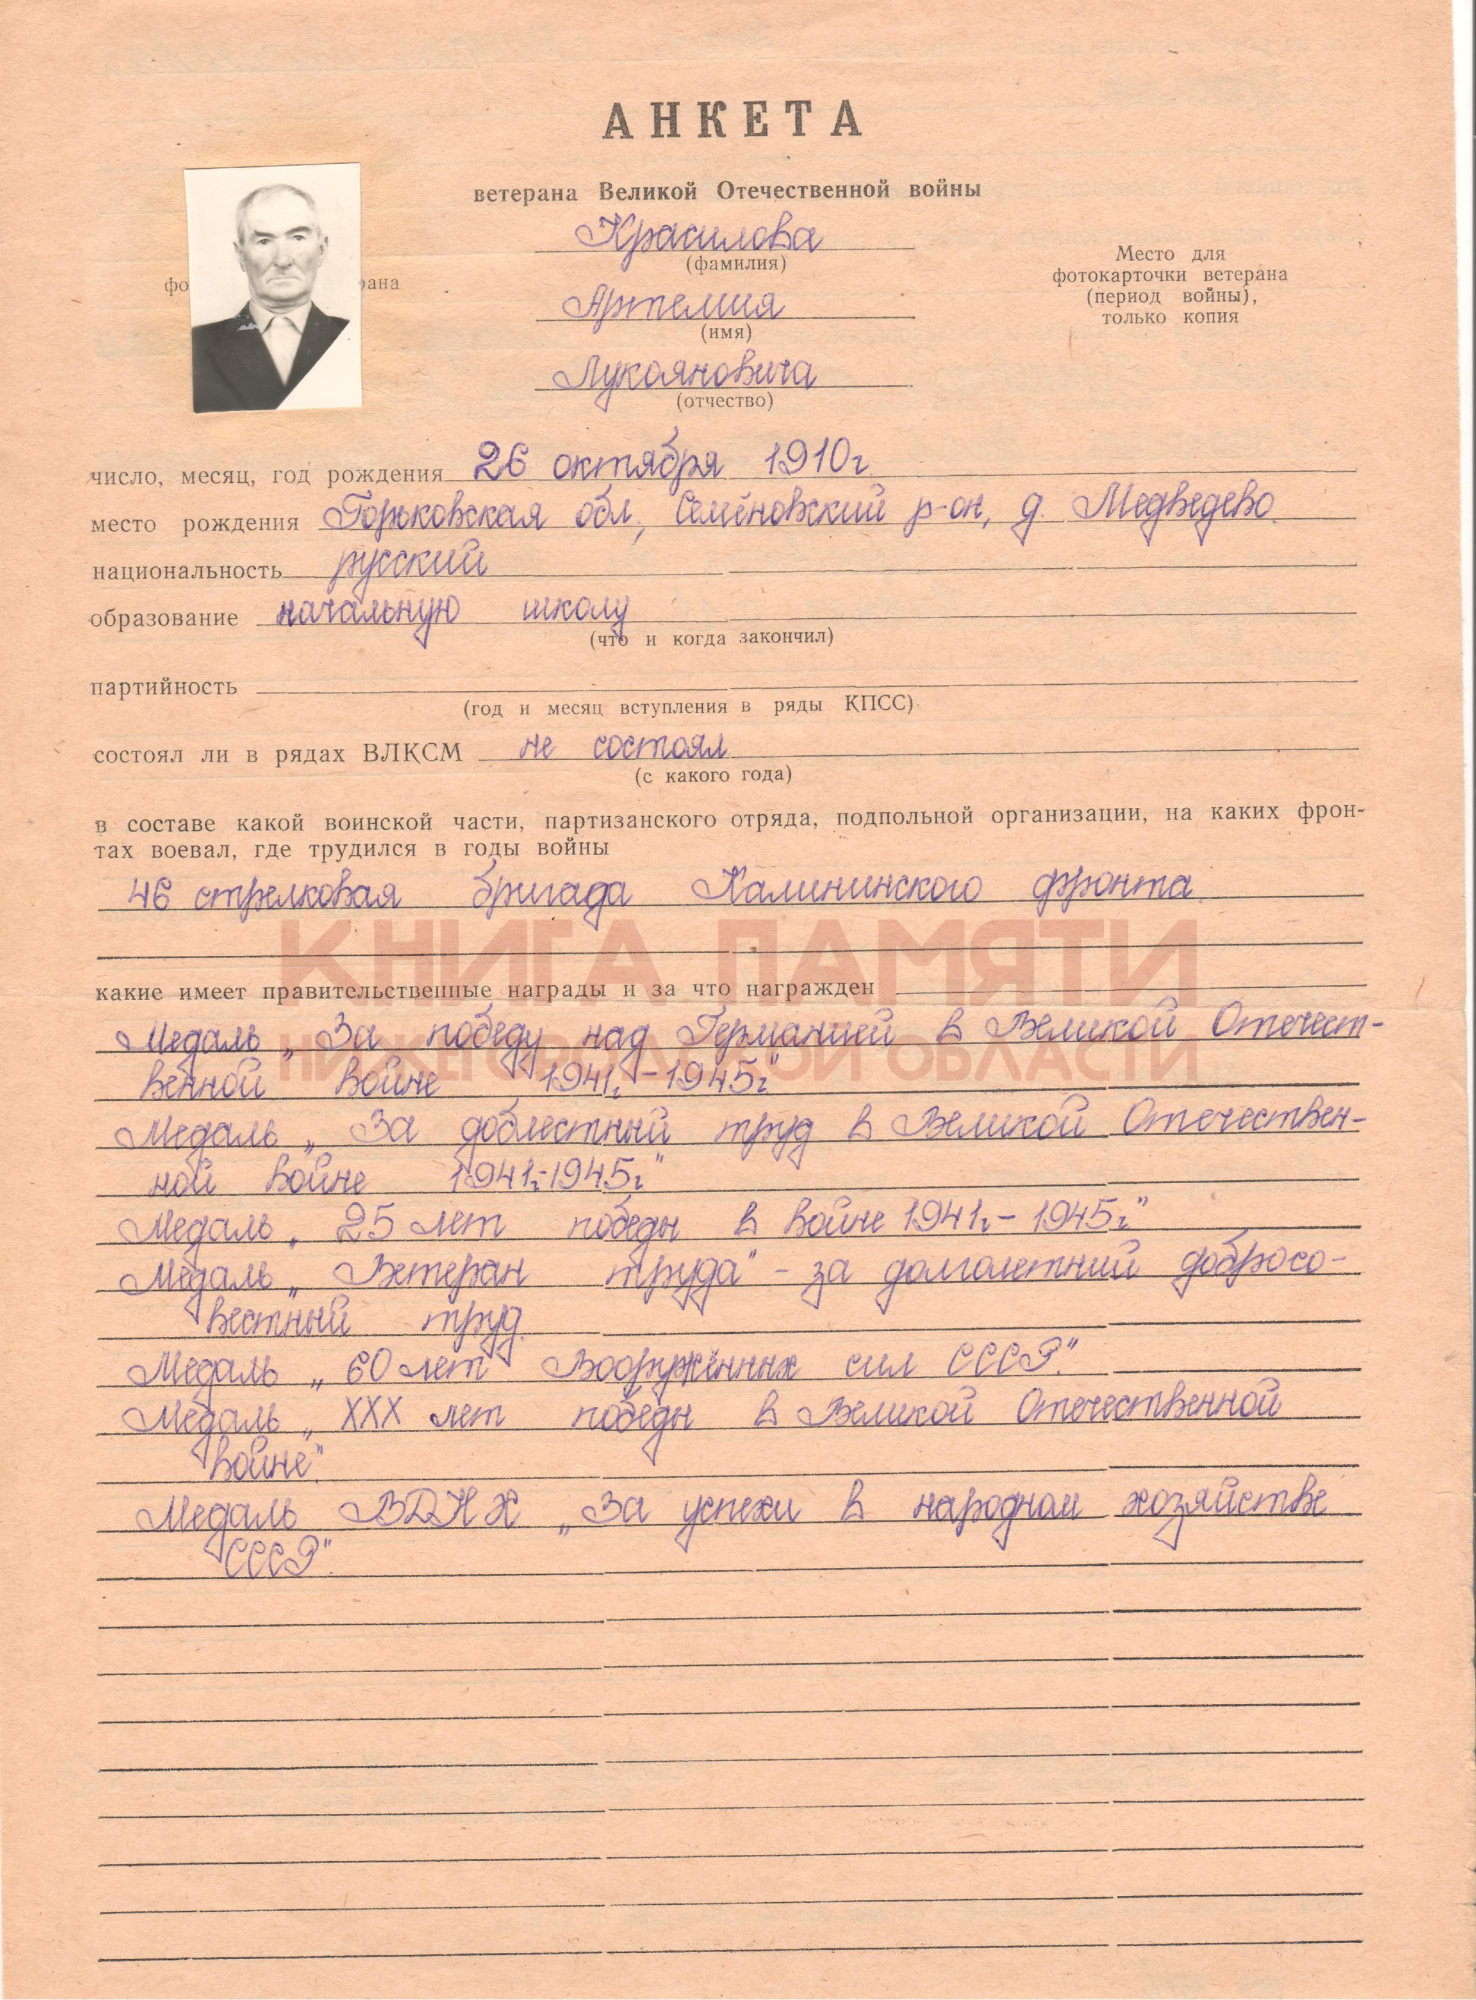 АНКЕТА
ветерана Великой Отечественной войны
Красилова
(фамилия)
Место для
фотокарточки ветерана
(период войны),
только копия
фо рана
Артемия
(имя)
Лукояновича
(отчество)
число, месяц, год рождения 26 октября 1910г.
место рождения Горьковская обл., Семёновский р-он, д. Медведево.
национальность русский
образование начальную школу
(что и когда закончил)
партийность
(год и месяц вступления в ряды КПСС)
состоял ли в рядах ВЛКСМ не состоял
(с какого года)
в составе какой воинской части, партизанского отряда, подпольной организации, на каких фрон-
тах воевал, где трудился в годы войны
46 стрелковая бригада Калининского фронта.
КНИГА ПАМЯТИ
НИЖЕГОРОДСКОЙ ОБЛАСТИ
какие имеет правительственные награды и за что награжден
Медаль „За победу над Германией в Великой Отечест-
венной войне 1941г.-1945г."
Медаль „За доблестный труд в Великой Отечествен-
ной войне 1941г.-1945г."
Медаль „25 лет победы в войне 1941г.-1945г."
Медаль „Ветеран труда" - за долголетний добросо-
вестный труд.
Медаль „60 лет Вооружённых сил СССР."
Медаль „XXX лет победы в Великой Отечественной
войне."
Медаль ВДНХ „За успехи в народном хозяйстве
СССР".